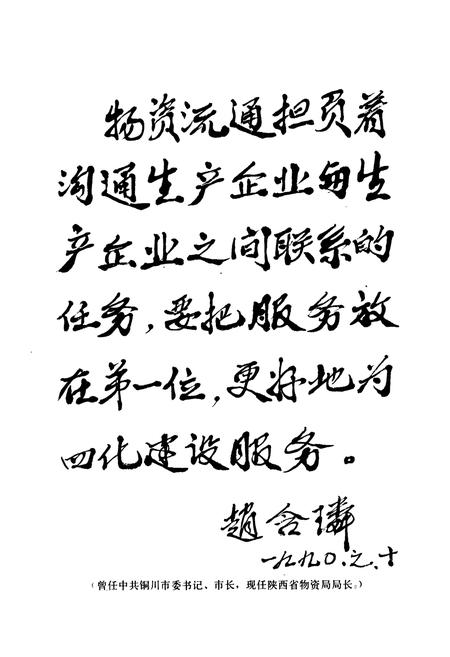 物资流通担负着
沟通生产企业与生
产企业之间联系的
任务，要把服务放
在第一位，更好地为
四化建设服务。
赵含璘
一九九〇.六.十
（曾任中共铜川市委书记、市长，现任陕西省物资局局长。）